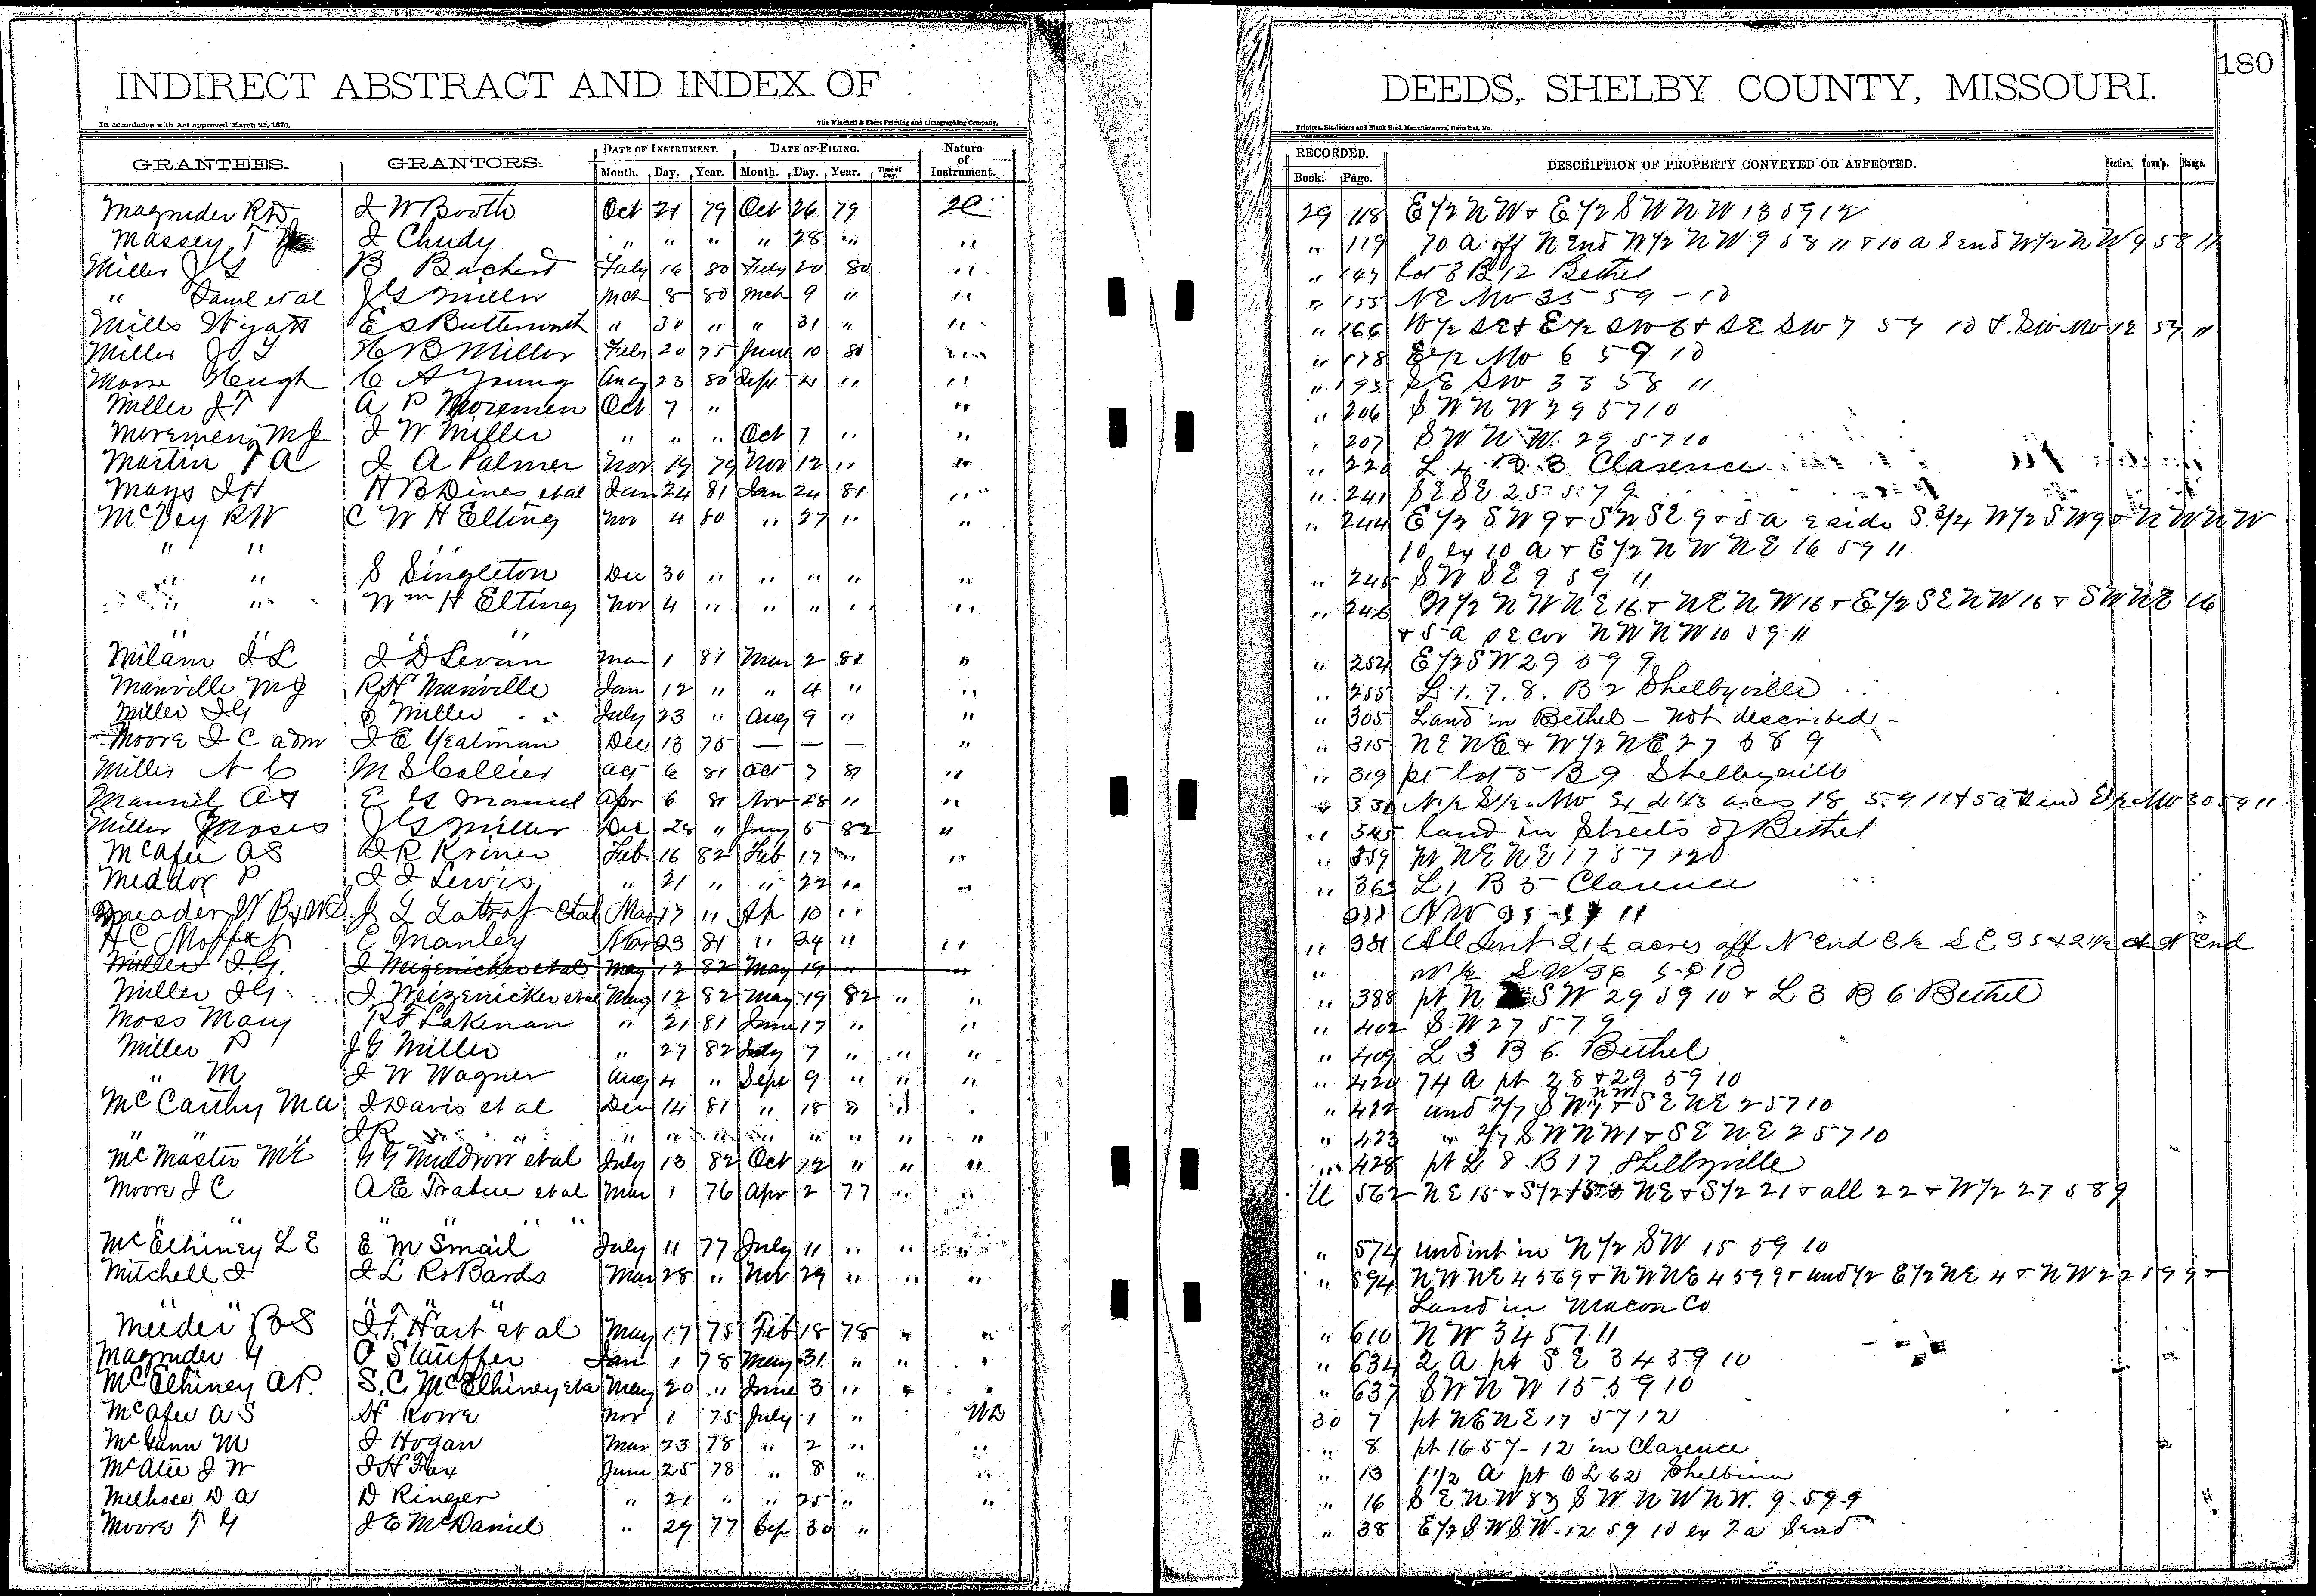 INDIRECT ABSTRACT AND INDEX OF
In accordance with Act approved March 25, 1870.
The Winchell & Ebert Printing and Lithographing Company,
GRANTEES. GRANTORS. DATE OF INSTRUMENT. DATE OF FILING. Nature of Instrument.
Month. Day. Year. Month. Day. Year. Time of Day.
Magruder R W J W Booth Oct 21 79 Oct 26 79
Massey T J Chudy " " " " 28 " "
Miller J G B Bachert Feby 16 80 Feby 20 80 "
" Saml et al J G Miller Mch 8 80 Mch 9 " "
Mills Wyatt E S Butterworth " 30 " " 31 " "
Miller J G H B Miller Feby 20 75 June 10 80 "
Moore Hugh C A Young Aug 23 80 Sept 4 " "
Miller J T A P Moremen Oct 7 " "
Moremen M J J W Miller " " " Oct 7 " "
Martin T A J A Palmer Nov 19 79 Nov 12 " "
Mays J H H B Dines et al Jan 24 81 Jan 24 81 "
McVey R W C W H Elting Nov 4 80 " 27 " "
" " "
" " S Singleton Dec 30 " " " " "
" " Wm H Elting Nov 4 " " " " "
" " " "
Milam J L J D Levan Mar 1 81 Mar 2 81 "
Manville M J R H Manville Jan 12 " " 4 " "
Miller J G S Miller July 23 " Aug 9 " "
Moore J C adm J E Yealman Dec 13 75 — — — "
Miller N C M S Collier Oct 6 81 Oct 7 81 "
Mannel A J E G Mannel Apr 6 81 Nov 28 " "
Miller Moses J G Miller Dec 28 " Jany 5 82 "
McAfee A S D R Kriner Feb 16 82 Feb 17 " "
Meador P J J Lewis " 21 " " 22 " "
Meador W B J L Lathrop et al Mar 17 " Ap 10 "
H C Moffet E Manley Mar 23 81 " 24 " "
Miller J G. J Weizenicker et al May 12 82 May 19 " "
Miller J G J Weizenicker et al May 12 82 May 19 82 " "
Moss Mary R F Lakenan " 21 81 June 17 " "
Miller P J G Miller " 27 82 July 7 " " "
" M J W Wagner Aug 4 " Sept 9 " " "
McCarthy M A J Davis et al Dec 14 81 " 18 " " "
" " J R " " " " " " " " " "
McMaster M E G Muldrow et al July 13 82 Oct 12 " " "
Moore J C A E Trabue et al Mar 1 76 Apr 2 77 " "
" " " " " "
McElhiney L E E M Smail July 11 77 July 11 " " "
Mitchell J J L RoBards Mar 28 " Nov 29 " " "
" " " " "
Meeder B S J F Hart et al May 17 75 Feb 18 78 " "
Magruder G O Stauffer Jan 1 78 May 31 " " "
McElhiney A P. S. C. McElhiney et al May 20 " June 3 " " "
McAfee A S H Rowe Nov 1 75 July 1 " WD
McGann M J Hogan Mar 23 78 " 2 " "
McAtee J W J H Fox June 25 78 " 8 " "
D A D Ringer " 21 " " 25 " "
Moore T G J E McDaniel " 29 77 Sep 30 "
180
DEEDS, SHELBY COUNTY, MISSOURI.
Printers, Stationers and Blank Book Manufacturers, Hannibal, Mo.
RECORDED. DESCRIPTION OF PROPERTY CONVEYED OR AFFECTED. Section. Town'p. Range.
Book. Page.
29 118 E 1/2 N W & E 1/2 S W N W 13 59 12
" 119 70 a off N End W 1/2 N W 9 58 11 & 10 a S end W 1/2 N W 9 58 11
" 147 lot 3 B 12 Bethel
" 155 NE NW 35 59 - 10
" 166 W 1/2 SE & E 1/2 SW 6 & SE SW 7 57 10 & SW NW 12 57 11
" 178 E 1/2 NW 6 59 10
" 195 SE SW 33 58 11
" 206 S W N W 29 57 10
" 207 S W N W 29 57 10
" 220 L 4 B 3 Clarence
" 241 S E S E 25 57 9
" 244 E 1/2 S W 9 & S W S E 9 & 5 a E side S 3/4 W 1/2 S W 9 & N W N W
10 ex 10 a & E 1/2 N W N E 16 59 11
" 245 S W S E 9 59 11
" 246 N 1/2 N W N E 16 & N E N W 16 & E 1/2 S E N W 16 & S W N E 16
& 5 a S E cor N W N W 10 59 11
" 254 E 1/2 S W 29 59 9
" 255 L 1. 7. 8. B 2 Shelbyville
" 305 Land in Bethel - not described -
" 315 N E N E & W 1/2 N E 27 58 9
" 319 pt lot 5 B 9 Shelbyville
" 330 N 1/2 S 1/2 NW acres 18 59 11 & 5 a S end E 1/2 NW 30 59 11
" 345 land in Streets of Bethel
" 359 pt N E N E 17 57 12
" 363 L 1 B 5 Clarence
NW 11
" 381 All 21 1/2 acres off N End E 1/2 S E 35 & 21 1/2 N End
" W 1/2 S W 36 58 10
" 388 pt N S W 29 59 10 & L 3 B 6 Bethel
" 402 S W 27 57 9
" 409 L 3 B 6. Bethel
" 420 74 A pt 28 & 29 59 10
" 422 und 2/7 S W NW 1 & S E N E 2 57 10
" 423 " 2/7 S W N W 1 & S E N E 2 57 10
" 428 pt L 8 B 17 Shelbyville
U 562 N E 15 & S 1/2 N E & S 1/2 21 & all 22 & W 1/2 27 58 9
" 574 und int in N 1/2 S W 15 59 10
" 594 N W N E 4 & N W N E 4 59 9 & und 1/2 E 1/2 N E 4 & N W 22 59 9 &
Land in Macon Co
" 610 N W 34 57 11
" 634 2 A pt S E 34 59 10
" 637 S W N W 15 59 10
30 7 pt N E N E 17 57 12
" 8 pt 16 57 - 12 in Clarence
" 13 1 1/2 A pt O L 62 Shelbina
" 16 S E N W 8 & S W N W N W. 9. 59 9
" 38 E 1/2 S W S W 12 59 10 ex 2 a S end